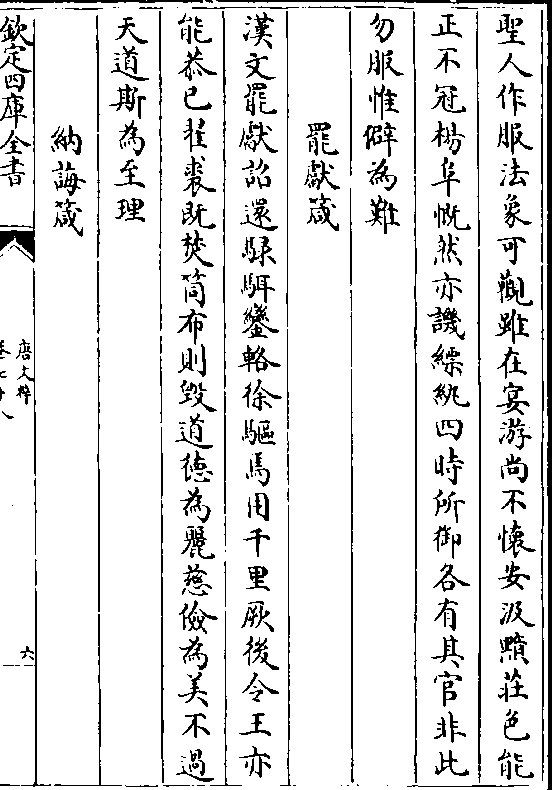 聖人作服法象可觀雖在宴游尚不懷安汲黯莊色能
正不冠楊阜慨然亦譏縹紈四時所御各有其官非此
勿服惟僻為難
罷獻箴
漢文罷獻詔還騄駬鑾輅徐驅焉用千里厥後令王亦
能恭已翟裘既焚筒布則毀道德為麗慈儉為美不過
天道斯為至理
納誨箴
欽定四庫全書
唐文粹
六